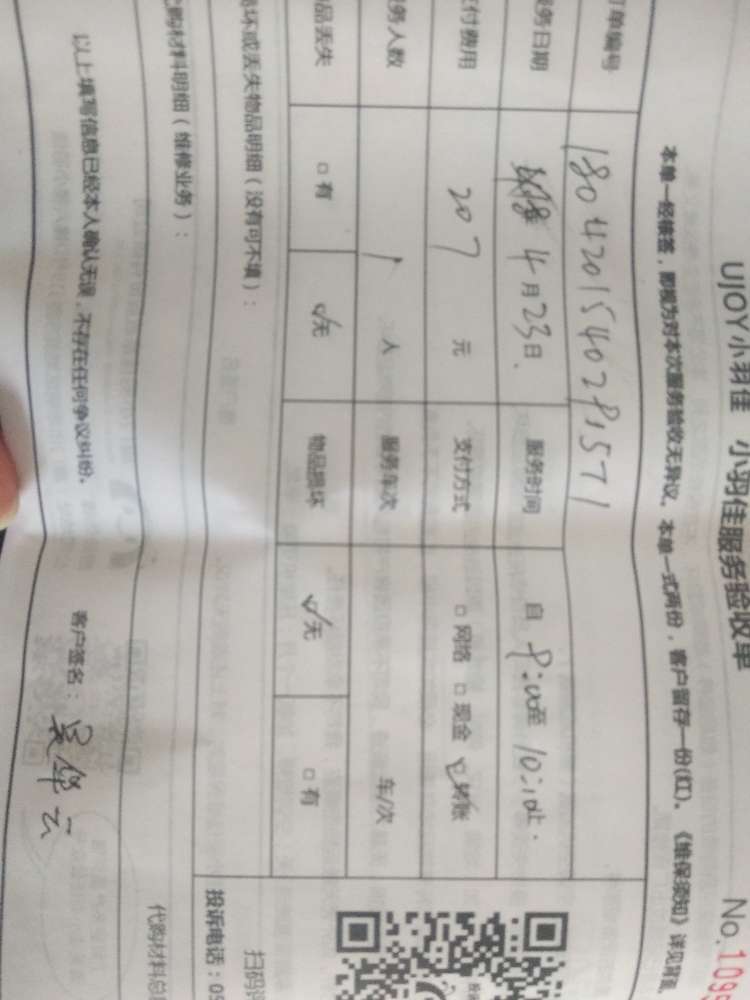 UJOY小羽佳 小羽佳服务验收单 No.109
本单一经接签，即视为对本次服务验收无异议。本单一式两份，客户留存一份(红)。《维保须知》详见背面
订单编号 180420154028,571
服务日期 4月23日. 服务时间 自 8:00至 10:10止.
支付费用 207 元 支付方式 □网络 □现金 ☑转账
服务人数 1 人 服务车次 车/次
物品丢失 □有 ☑无 物品损坏 ☑无 □有
损坏或丢失物品明细（没有可不填）：
扫码
投诉电话：05
代购材料明细（维修业务）：
代购材料总
以上填写信息已经本人确认无误，不存在任何争议纠纷。 客户签名：吴华云